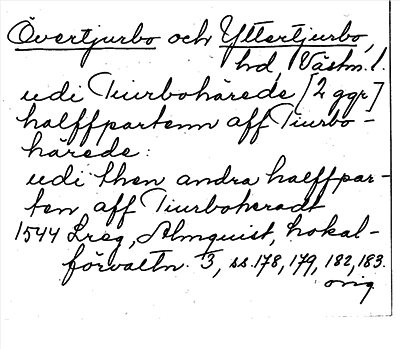 Övertjurbo och Yttertjurbo,
hd, Västm. l.
udi Tiurbohärede [2 ggr]
halffpartenn aff Tiurbo-
härede:
udi then andra halffpar-
ten aff Tiurboheradt
1544 Lreg, Almquist, Lokal-
förvaltn. 3, ss. 178, 179, 182, 183.
orig